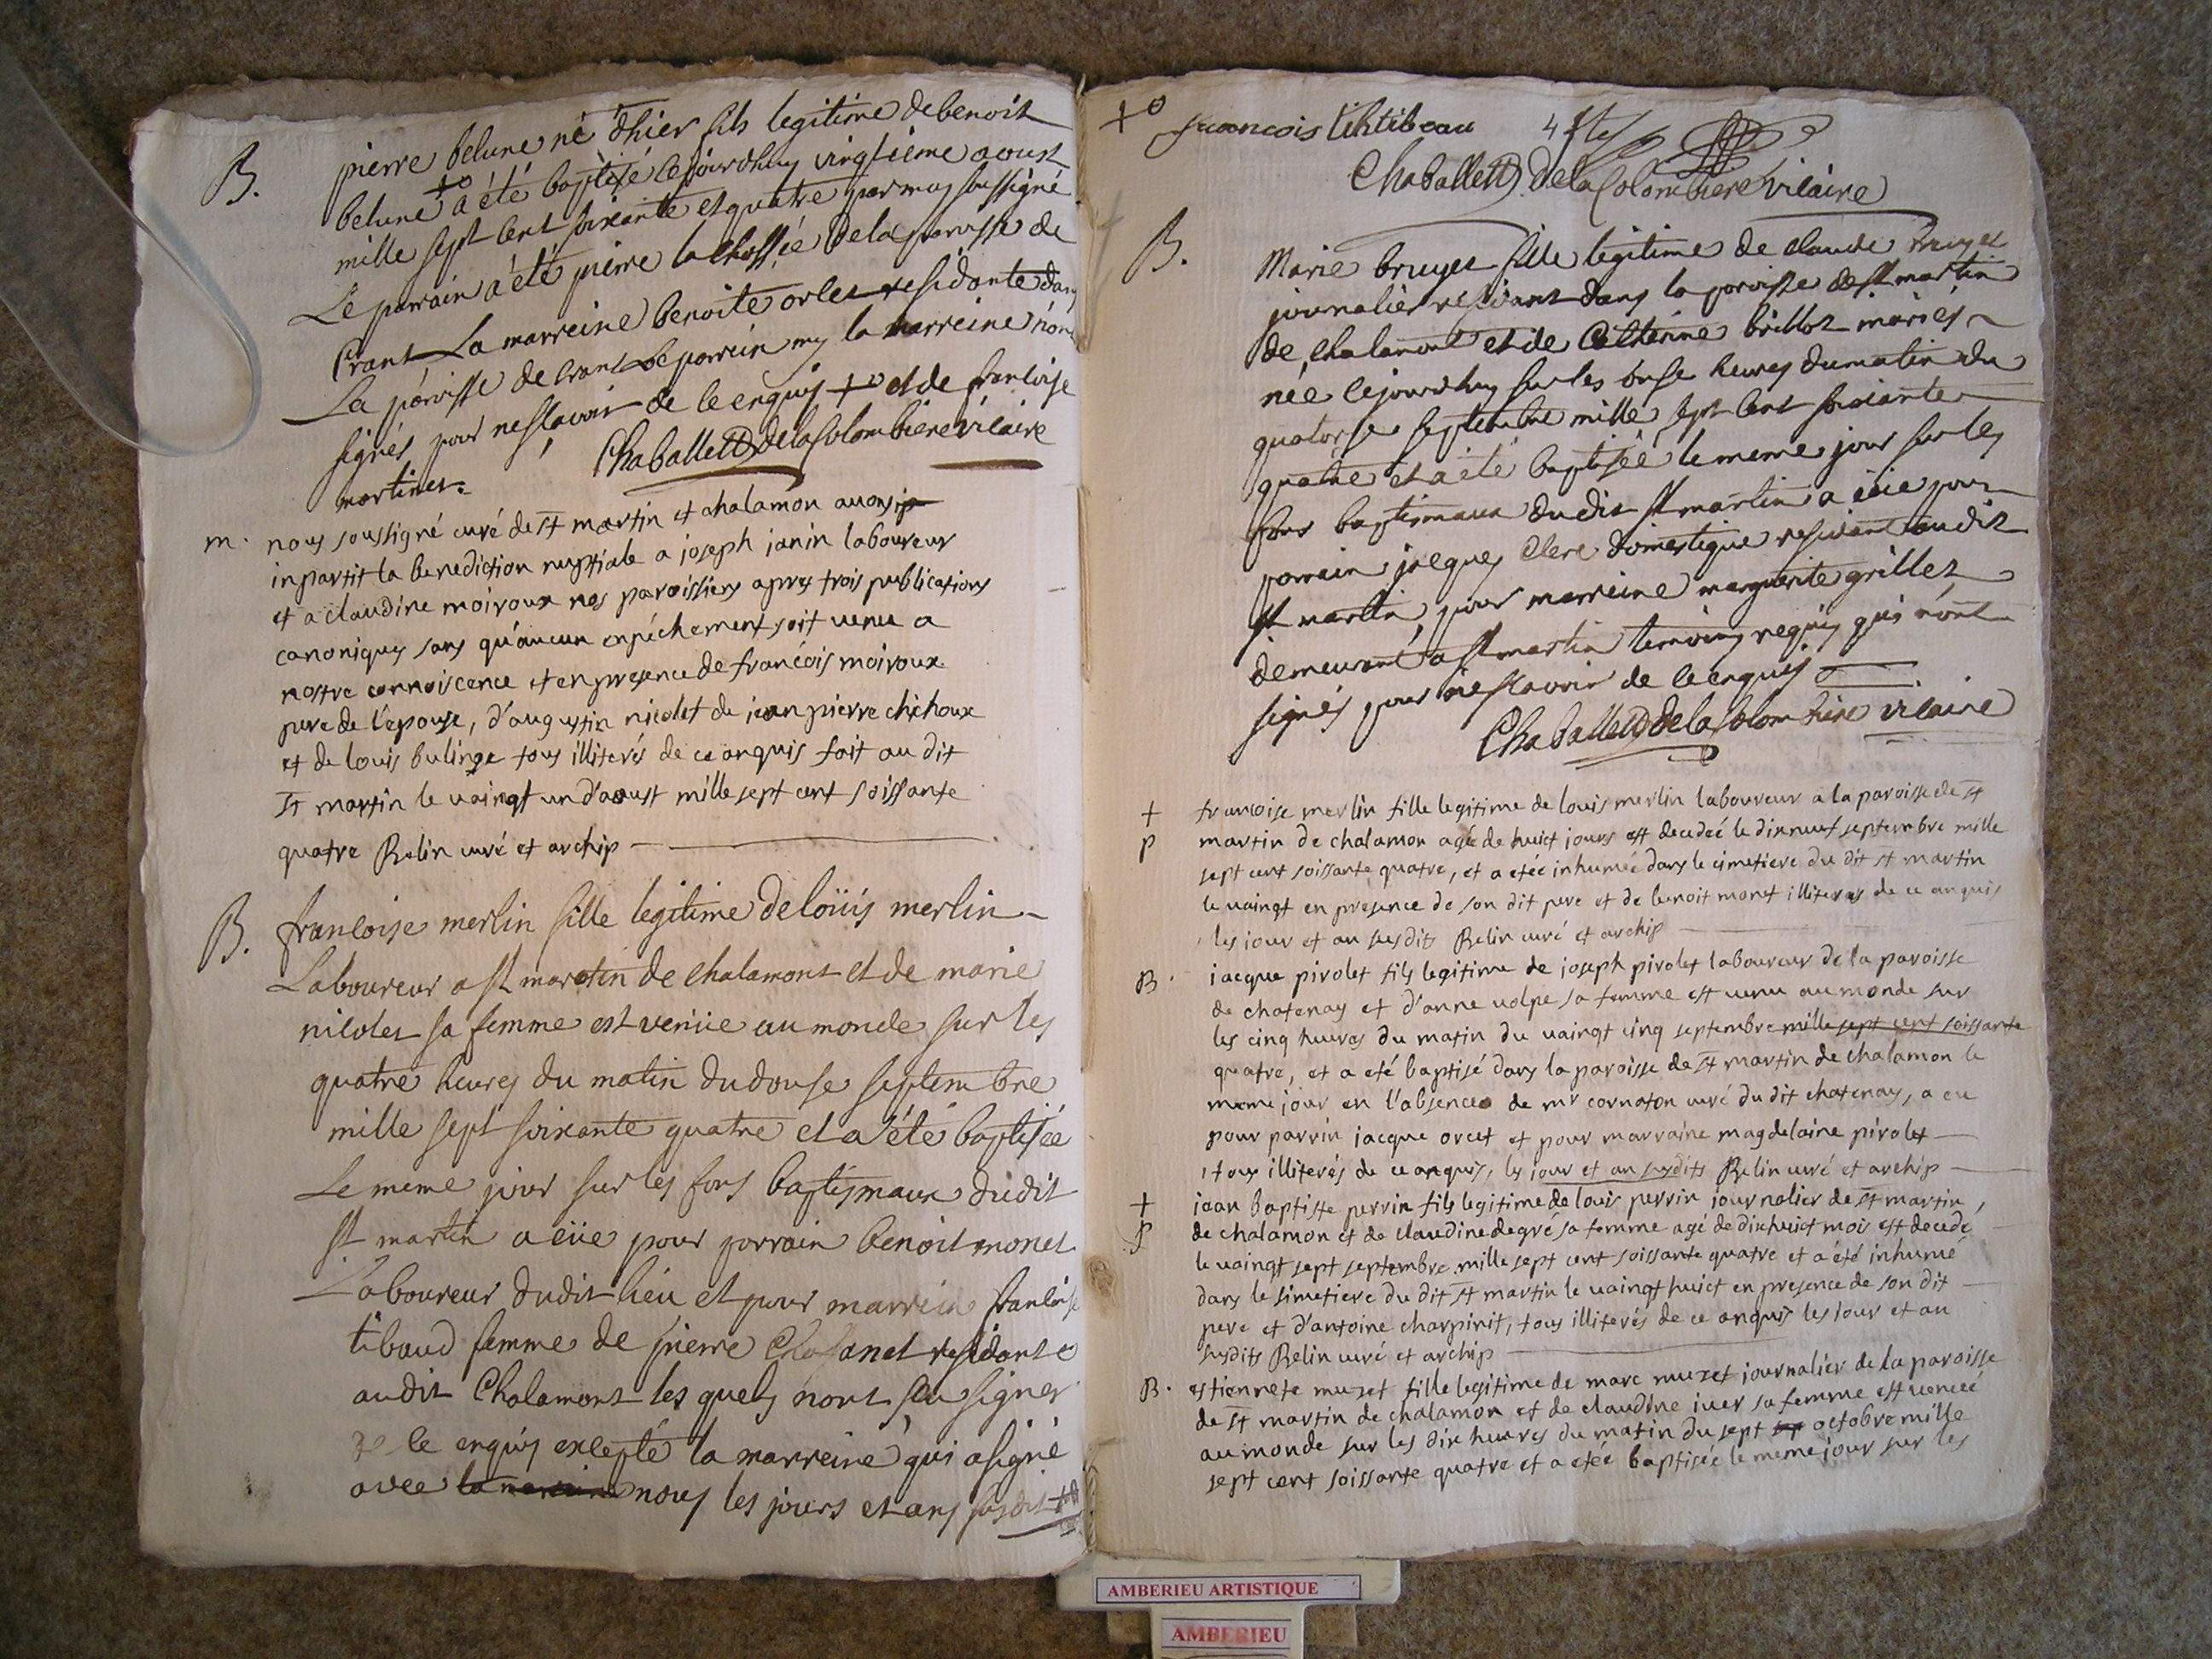 B. pierre belune né d'hier fils legitime de benoit
belune +o a été baptisé le jourdhuy vingtieme aoust
mille sept cent soixante et quatre par moy soussigné
Le parrain a été pierre la chossée de la paroisse de
Crant La marreine benoite orlet residante dans
La paroisse de crant Le parrein ny la marreine n'ont
signés pour ne sçavoir de ce enquis +o et de francoise
martinet. Chaballett de la Colombiere vicaire
m. nous soussigné curé de st martin et chalamon avons ip
inpartit la benediction nuptiale a joseph janin laboureur
et a claudine moiroux nos paroissiens apres trois publications
canoniques sans qu'aucun enpéchement soit venu a
nostre connoiscence et en presence de francois moiroux
pere de l'epouse, d'augustin nicolet de jean pierre chichoux
et de louis bulinge tous illiterés de ce anquis fait au dit
st martin le vaingt un d'aoust mille sept cent soissante
quatre Relin curé et archip
B. francoise merlin fille legitime de loüis merlin
Laboureur a st martin de chalamont et de marie
nicolet sa femme est venüe au monde sur les
quatre heures du matin du douse septembre
mille sept soixante quatre et a été baptisée
Le meme jour sur les fons baptismaux dudit
st martin a eüe pour parrain benoit monet
Laboureur dudit lieu et pour marreine francoise
tibaud femme de pierre residante
audit Chalamont les quels nont sçu signer
de ce enquis excepté la marreine qui a signé
avec la marreine nous les jours et ans susdit +o
+o francois tibeau
Chaballett de la Colombiere vicaire
B. Marie bruyet fille legitime de claude bruyet
journalier residant dans la paroisse de st martin
de chalamont et de Catherine brillot mariés
née le jourdhuy sur les onse heures du matin du
quatorse septembre mille sept cent soixante
quatre et a été baptisée le meme jour sur les
fons baptismaux dudit st martin a eüe pour
parrein jacques Clere domestique residant audit
st martin, pour marreine marguerite grillet
demeurant a st martin temoins requis qui n'ont
signés pour ne sçavoir de ce enquis
Chaballett de la Colombiere vicaire
+ francoise merlin fille legitime de louis merlin laboureur a la paroisse de st
p martin de chalamon agée de huict jours est decedeé le dixneuf septembre mille
sept cent soissante quatre, et a etée inhumée dans le cimetiere du dit st martin
le vaingt en presence de son dit pere et de benoit monet illiteres de ce anquis
les jour et an susdits Relin curé et archip
B. jacque pirolet fils legitime de joseph pirolet laboureur de la paroisse
de chatenay et d'anne volpe sa femme est venu au monde sur
les cinq heures du matin du vaingt cinq septembre mille sept cent soissante
quatre, et a eté baptisé dans la paroisse de st martin de chalamon le
meme jour en l'absence de mr cornaton curé du dit chatenay, a eu
pour parrin jacque orcet et pour marraine magdelaine pirolet
tous illiterés de ce anquis, les jour et an susdits Relin curé et archip
+ jean baptiste perrin fils legitime de louis perrin journalier de st martin
p de chalamon et de claudine degré sa femme agé de dixhuict mois est decedé
le vaingt sept septembre mille sept cent soissante quatre et a été inhumé
dans le simetiere du dit st martin le vaingt huict en presence de son dit
pere et d'antoine charpinit, tous illiterés de ce anquis les jour et an
susdits Relin curé et archip
B. estiennete muzet fille legitime de marc muzet journalier de la paroisse
de st martin de chalamon et de claudine iver sa femme est veneüe
au monde sur les dix heures du matin du sept octobre mille
sept cent soissante quatre et a etée baptisée le meme jour sur les
AMBERIEU ARTISTIQUE
AMBERIEU